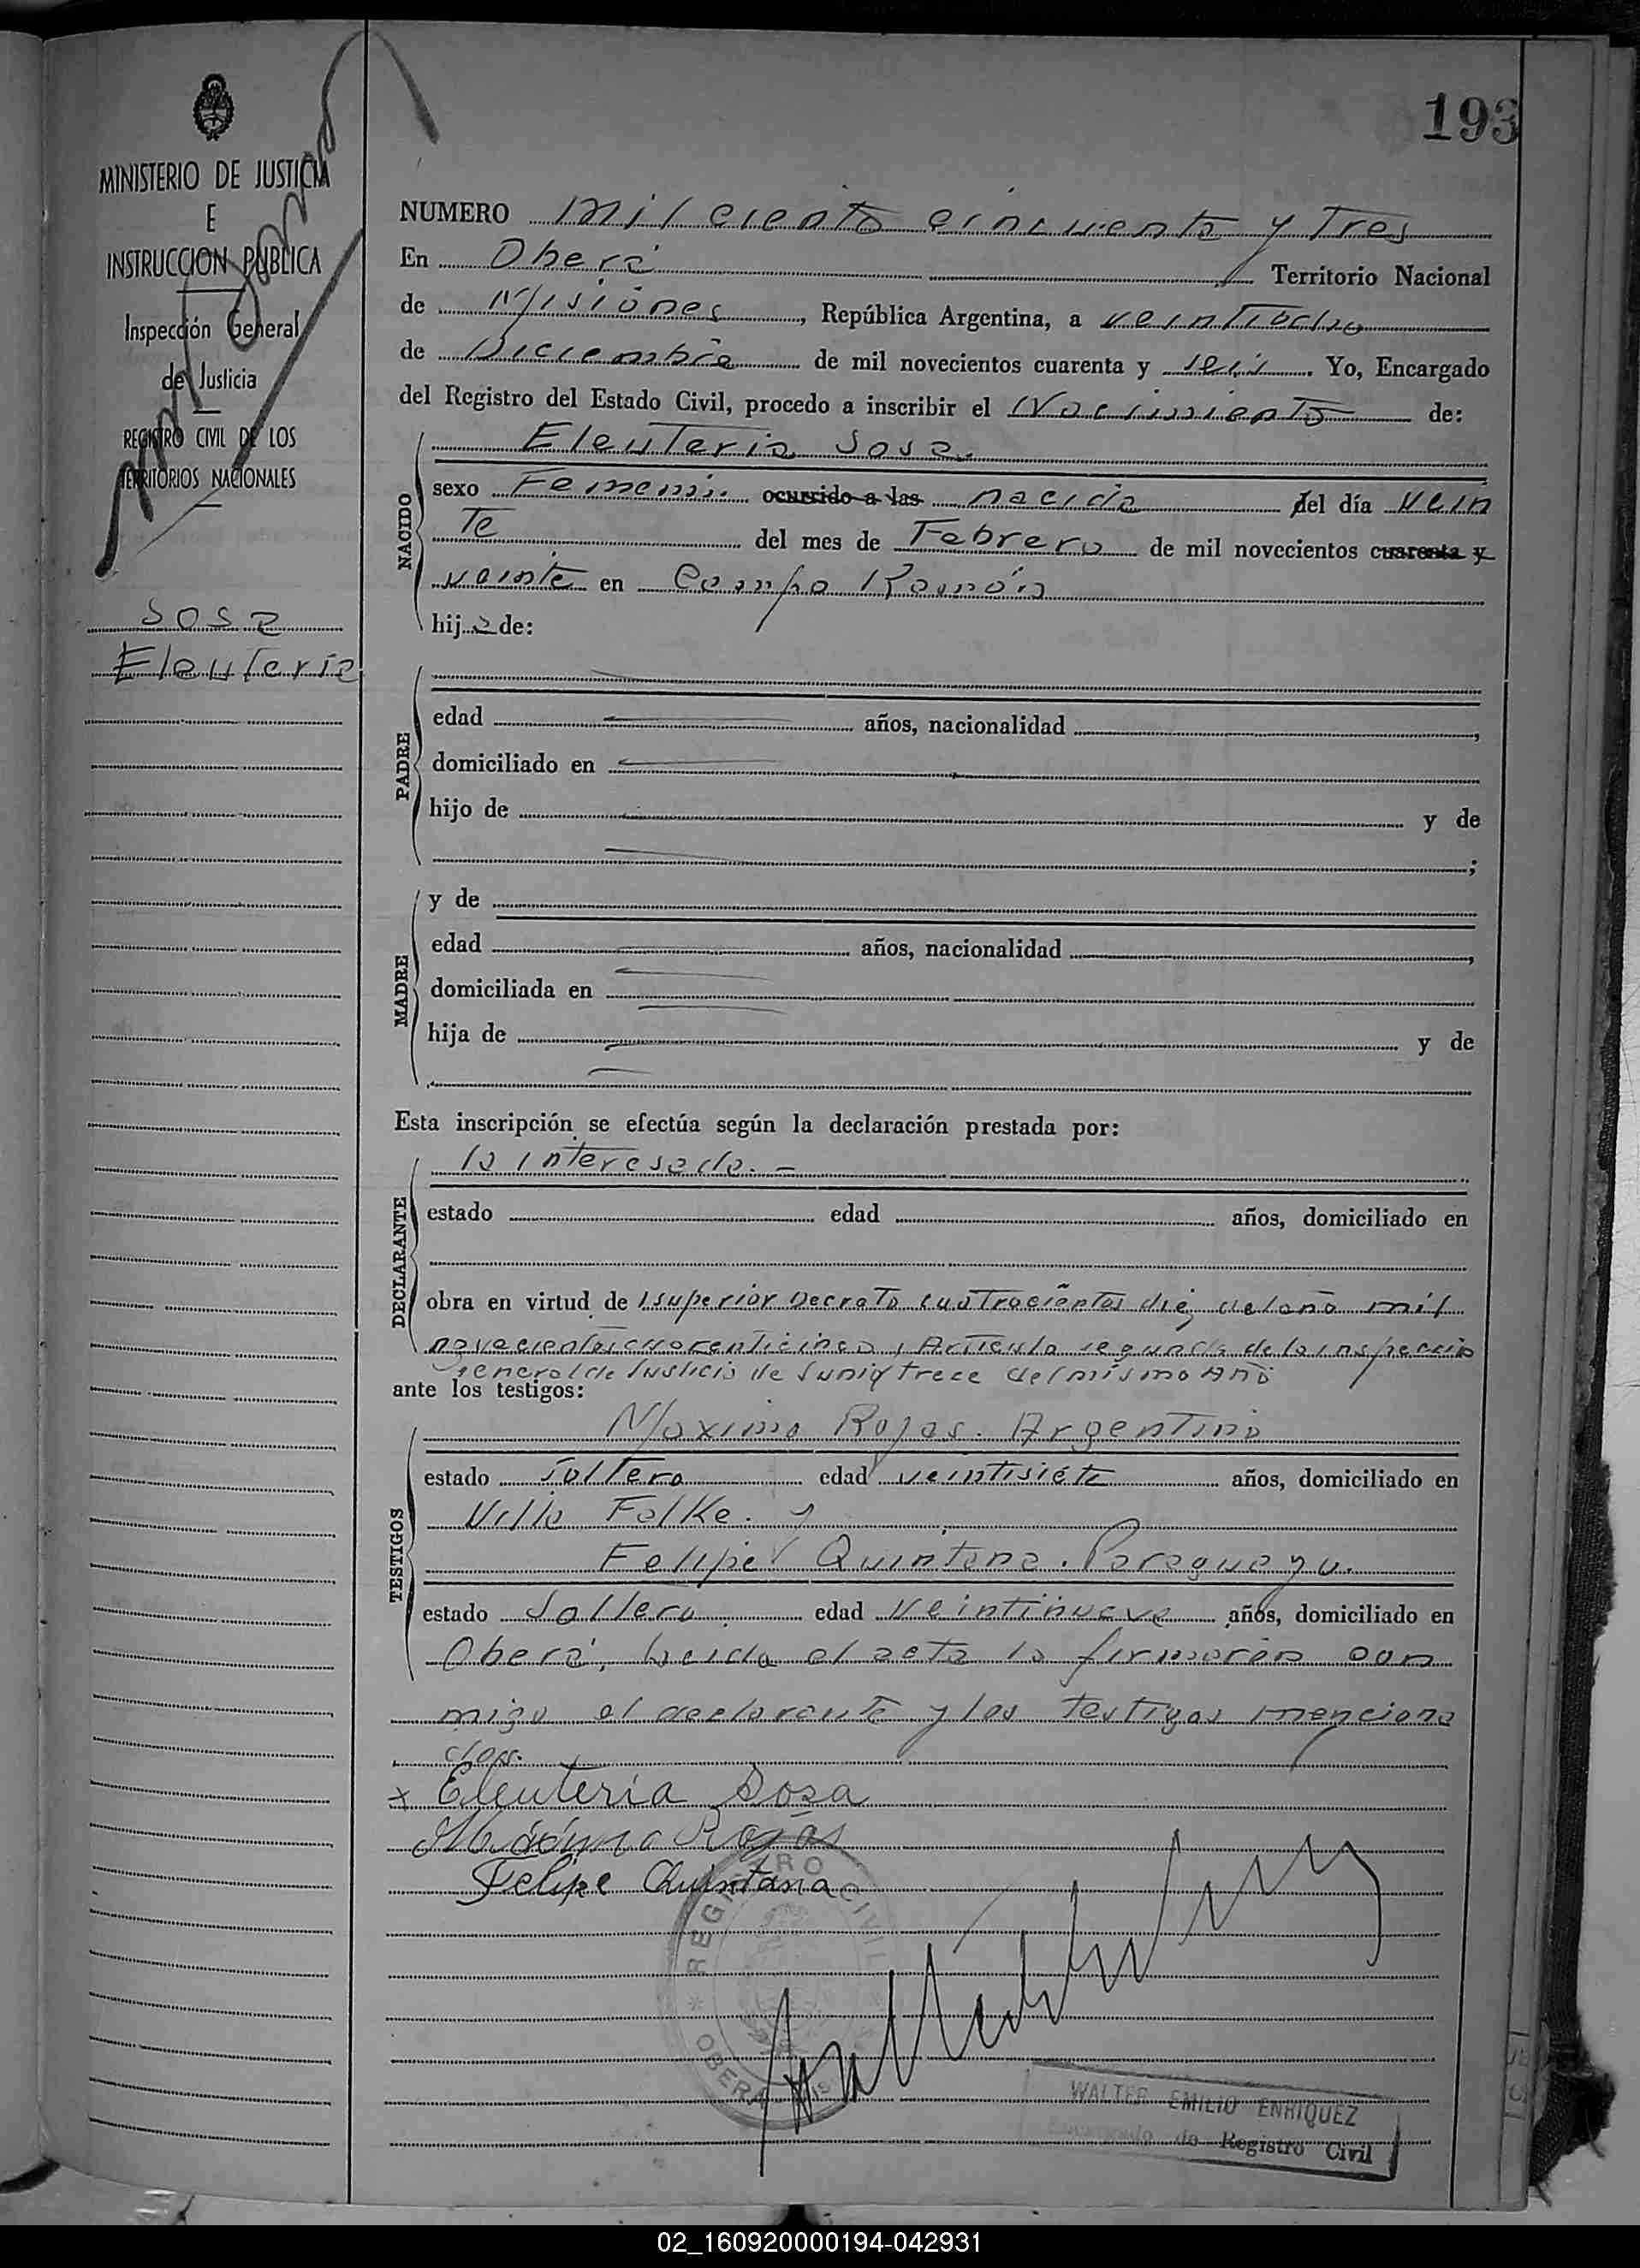 193
MINISTERIO DE JUSTICIA
E
INSTRUCCION PUBLICA
Inspección General
de Justicia
REGISTRO CIVIL DE LOS
TERRITORIOS NACIONALES
Sosa
Eleuteria
NUMERO mil ciento cincuenta y Tres
En Oberá Territorio Nacional
de Misiones, República Argentina, a veintiocho
de Diciembre de mil novecientos cuarenta y seis. Yo, Encargado
del Registro del Estado Civil, procedo a inscribir el Nacimiento de:
NACIDO
Eleuteria Sosa.
sexo Femenin. ocurrido a las nacida del día vein
te del mes de Febrero de mil novecientos cuarenta y
veinte en Campo Ramón
hija de:
PADRE
edad años, nacionalidad ,
domiciliado en
hijo de y de
;
MADRE
y de
edad años, nacionalidad ,
domiciliada en
hija de y de
Esta inscripción se efectúa según la declaración prestada por:
DECLARANTE
la interesada. -
estado edad años, domiciliado en
obra en virtud de superior Decreto cuatrocientos diez del año mil
novecientos cuarenticinco, Articulo segundo de la inspeccio
general de Justicia de Junio trece del mismo Año
ante los testigos:
TESTIGOS
Maximo Rojas. Argentino
estado soltero edad veintisiete años, domiciliado en
Villa Falke. y
Felipe Quintana. Paraguayo.
estado Soltero edad Veintinueve años, domiciliado en
Oberá. Leida el acta la firmarón con
migo el declarante y los testigos menciona
dos.
x Eleuteria Sosa
Máximo Rojas
Felipe Quintana
REGISTRO CIVIL
OBERA
WALTER EMILIO ENRIQUEZ
Encargado de Registro Civil
02_160920000194-042931